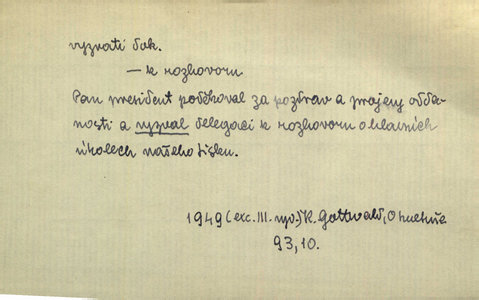 vyzvati dok.
— k rozhovoru
Pan president poděkoval za pozdrav a projevy odda-
nosti a vyzval delegaci k rozhovoru o hlavních
úkolech našeho tisku.
1949 (exc. III. vyd.) K. Gottwald, O kultuře
93, 10.